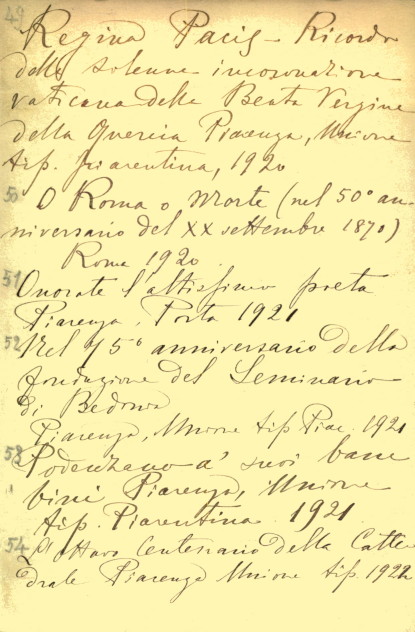 49
Regina Pacis - Ricordo
della solenne incoronazione
vaticana della Beata Vergine
della Quercia Piacenza, Unione
tip. piacentina, 1920
50 O Roma o Morte (nel 50° an-
niversario del XX settembre 1870)
Roma 1920
51 Onorate l'altissimo poeta
Piacenza, Porta 1921
52 Nel 75° anniversario della
fondazione del Seminario
di Bedonia
Piacenza, Unione tip. Piac. 1921
53 Podenzano a' suoi bam
bini Piacenza, Unione
tip. Piacentina 1921
54 Ottavo Centenario della Catte
drale Piacenza Unione tip. 1922